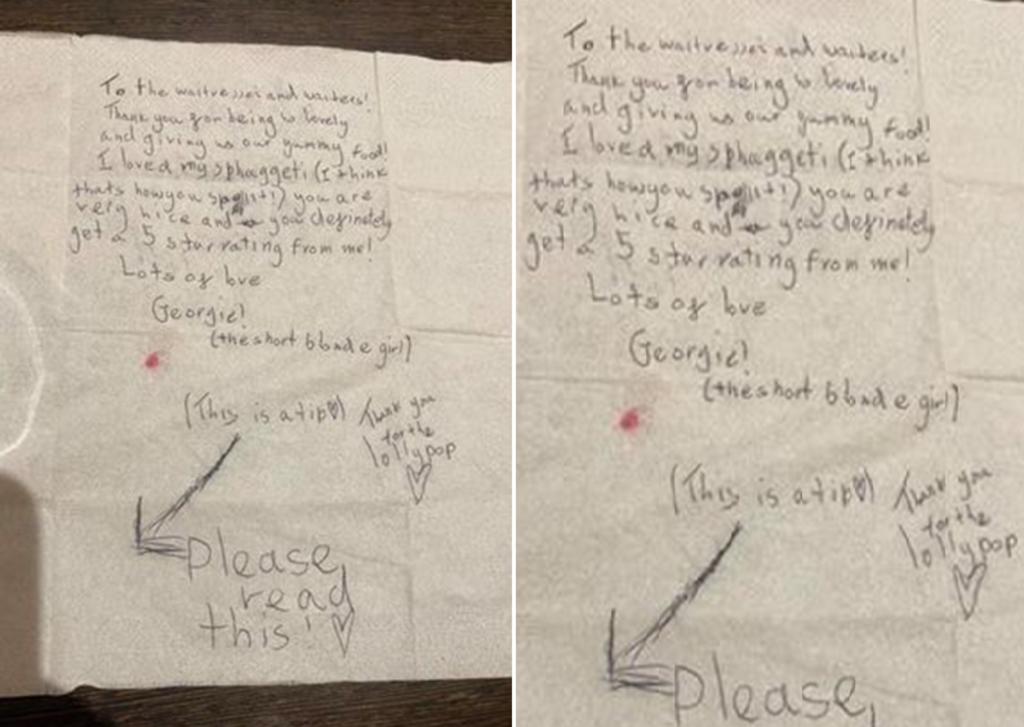 To the waitresses and waiters!
Thank you for being so lovely
and giving us our yummy food!
I loved my sphaggeti (I think
thats how you spell it!) you are
very nice and you definetely
get a 5 star rating from me!
Lots of love
Georgie!
(the short blonde girl)
(This is a tip♡) Thank you
for the
lollypop
♡
Please,
read
this! ♡
To the waitresses and waiters!
Thank you for being so lovely
and giving us our yummy food!
I loved my sphaggeti (I think
thats how you spell it!) you are
very nice and you definetely
get a 5 star rating from me!
Lots of love
Georgie!
(the short blonde girl)
(This is a tip♡) Thank you
for the
lollypop
♡
Please,